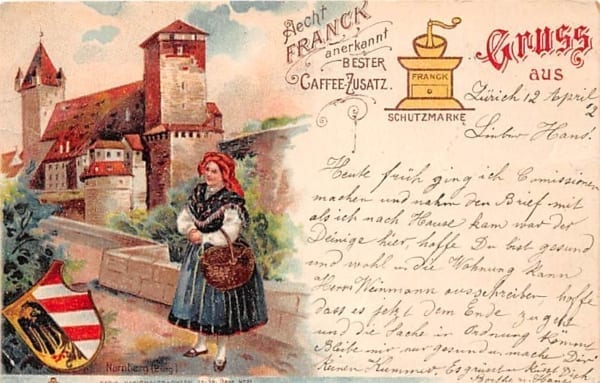 Aecht
FRANCK
anerkannt
BESTER
CAFFEE-ZUSATZ.
FRANCK
SCHUTZMARKE
Gruss
aus
Zürich 12 April
Lieber Hans!
Heute früh ging ich Comissionen
machen und nahm den Brief mit
als ich nach Hause kam war der
Deinige hier, hoffe Du bist gesund
und wohl u die Wohnung kann
Herr Weinmann ausschreiber, hoffe
dass es jetzt dem Ende zu geht
und die Sache in Ordnung kommt
Bleibe mir nur gesund u. mache Dir
keinen Kummer. Es grüsst u küsst Dich
Nürnberg (Burg)